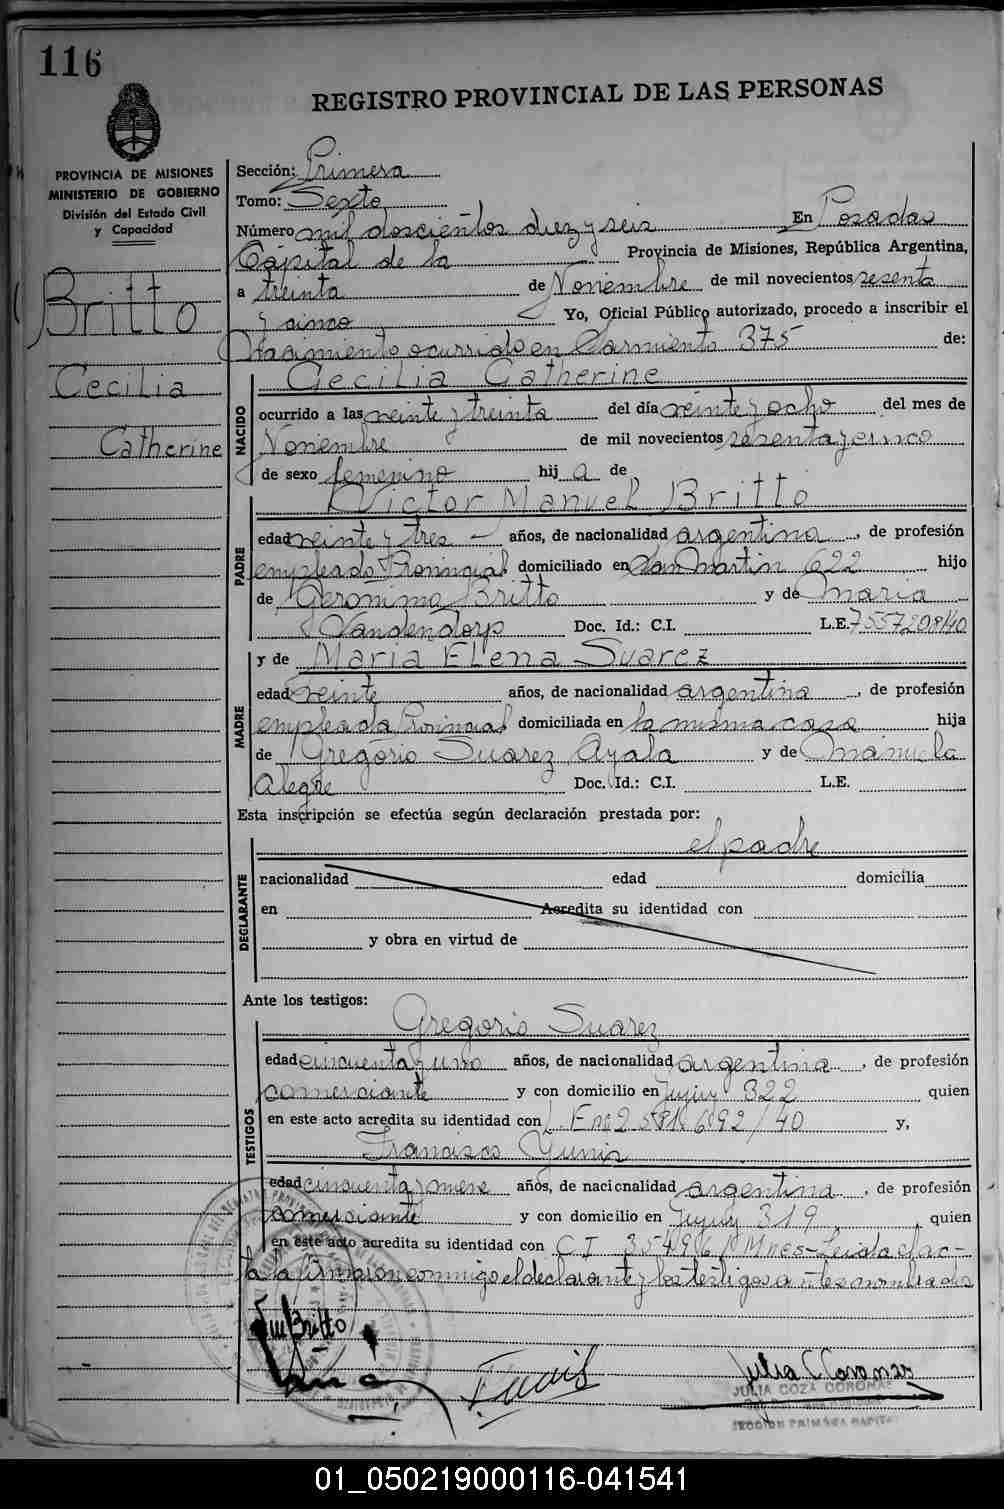 116
REGISTRO PROVINCIAL DE LAS PERSONAS
PROVINCIA DE MISIONES
MINISTERIO DE GOBIERNO
División del Estado Civil
y Capacidad
Britto
Cecilia
Catherine
Sección: Primera
Tomo: Sexto
Número mil doscientos diez y seis En Posadas
Capital de la Provincia de Misiones, República Argentina,
a treinta de Noviembre de mil novecientos sesenta
y cinco Yo, Oficial Público autorizado, procedo a inscribir el
Nacimiento ocurrido en Sarmiento 375 de:
Cecilia Catherine
NACIDO
ocurrido a las veinte y treinta del día veinte y ocho del mes de
Noviembre de mil novecientos sesenta y cinco
de sexo femenino hij a de
Victor Manuel Britto
PADRE
edad veinte y tres años, de nacionalidad argentina, de profesión
empleado Provincial domiciliado en San Martin 622 hijo
de Geronimo Britto y de Maria
Vandendorp Doc. Id.: C.I. L.E. 7557208/40
y de Maria Elena Suarez
MADRE
edad veinte años, de nacionalidad argentina, de profesión
empleada Provincial domiciliada en la misma casa hija
de Gregorio Suarez Ayala y de Manuela
Alegre Doc. Id.: C.I. L.E.
Esta inscripción se efectúa según declaración prestada por:
el padre
DECLARANTE
nacionalidad edad domicilia
en Acredita su identidad con
y obra en virtud de
Ante los testigos:
Gregorio Suarez
TESTIGOS
edad cincuenta y uno años, de nacionalidad argentina, de profesión
comerciante y con domicilio en Jujuy 322 quien
en este acto acredita su identidad con y,
Francisco
edad cincuenta y nueve años, de nacionalidad argentina, de profesión
comerciante y con domicilio en Jujuy 319, quien
en este acto acredita su identidad con C I Mnes - Leida el ac-
ta la firmaron conmigo el declarante y los testigos antes nombrados
Britto
JULIA COZA CORONAS
SECCION PRIMERA CAPITAL
01_050219000116-041541